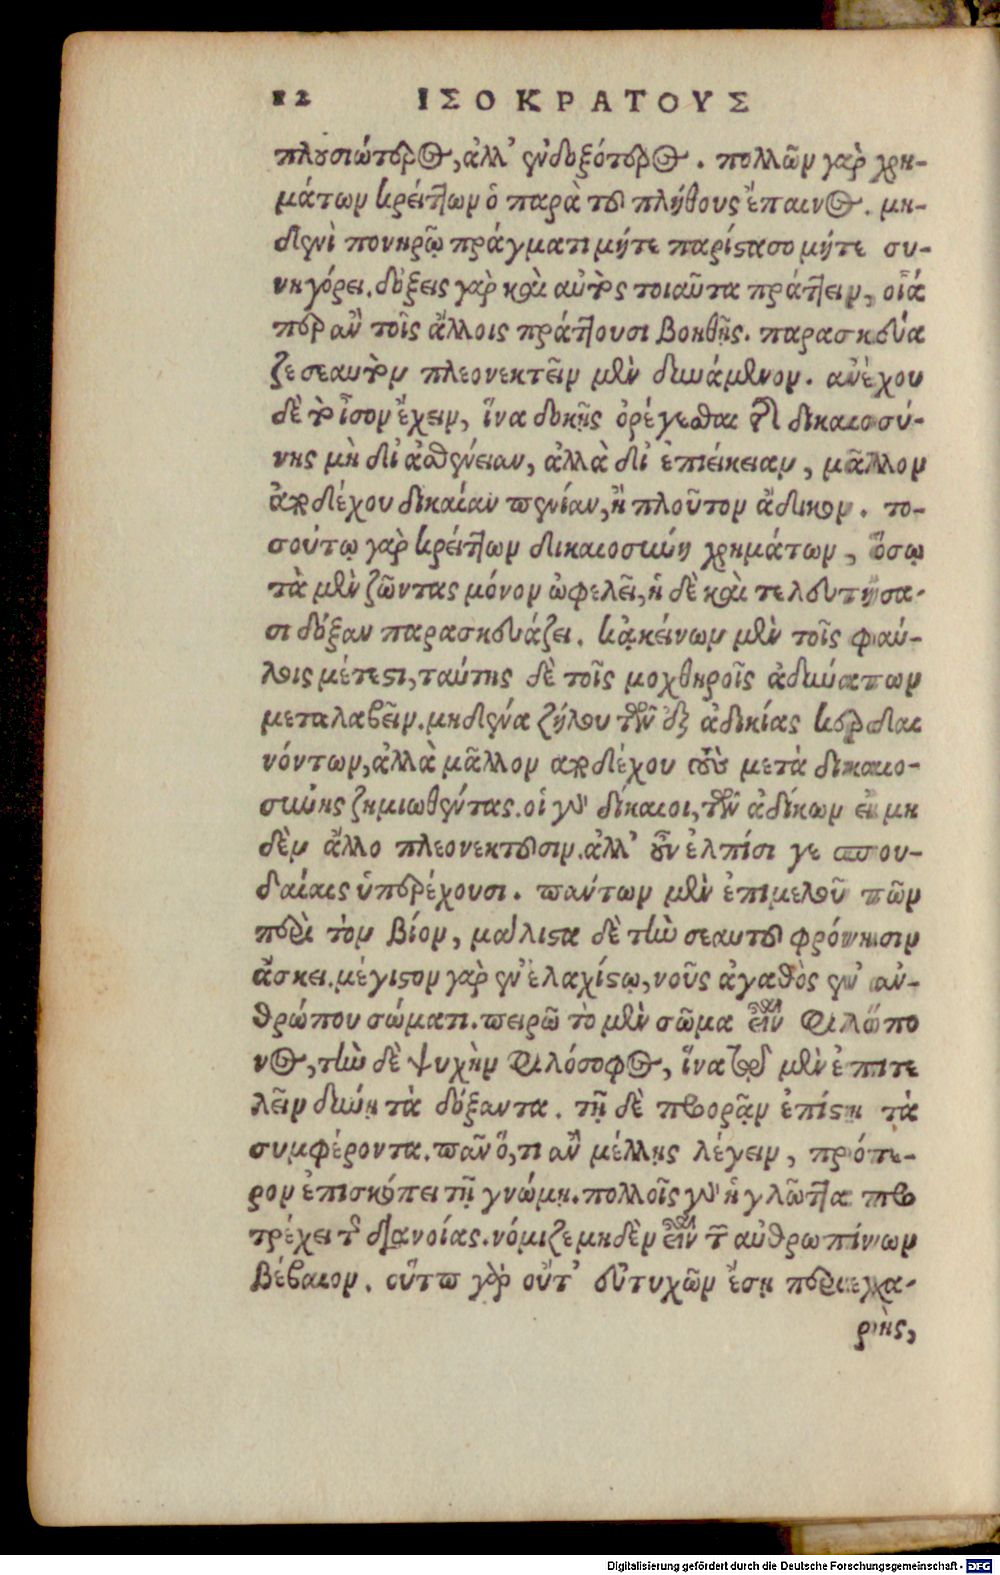 12 ΙΣΟΚΡΑΤΟΥΣ
πλουσιώτερος, ἀλλ' ἐνδοξότερος. πολλῶν γὰρ χρη-
μάτων κρείττων ὁ παρὰ τοῦ πλήθους ἔπαινος. μη-
δενὶ πονηρῷ πράγματι μήτε παρίστασο μήτε συ-
νηγόρει. δόξεις γὰρ καὶ αὐτὸς τοιαῦτα πράττειν, οἷά
περ ἂν τοῖς ἄλλοις πράττουσι βοηθῇς. παρασκεύα
ζε σεαυτὸν πλεονεκτεῖν μὲν δυνάμενον. ἀνέχου
δὲ τὸ ἴσον ἔχειν, ἵνα δοκῇς ὀρέγεσθαι τῆς δικαιοσύ-
νης μὴ δι' ἀσθένειαν, ἀλλὰ δι' ἐπιείκειαν, μᾶλλον
ἀποδέχου δικαίαν πενίαν, ἢ πλοῦτον ἄδικον. το-
σούτῳ γὰρ κρείττων δικαιοσύνη χρημάτων, ὅσῳ
τὰ μὲν ζῶντας μόνον ὠφελεῖ, ἡ δὲ καὶ τελευτήσα-
σι δόξαν παρασκευάζει. κἀκείνων μὲν τοῖς φαύ-
λοις μέτεστι, ταύτης δὲ τοῖς μοχθηροῖς ἀδύνατον
μεταλαβεῖν. μηδένα ζήλου τῶν ἐξ ἀδικίας κερδαι
νόντων, ἀλλὰ μᾶλλον ἀποδέχου τοὺς μετὰ δικαιο-
σύνης ζημιωθέντας. οἱ γὰρ δίκαιοι, τῶν ἀδίκων εἰ μη
δὲν ἄλλο πλεονεκτοῦσιν. ἀλλ' οὖν ἐλπίσι γε σπου-
δαίαις ὑπερέχουσι. πάντων μὲν ἐπιμελοῦ τῶν
περὶ τὸν βίον, μάλιστα δὲ τὴν σεαυτοῦ φρόνησιν
ἄσκει. μέγιστον γὰρ ἐν ἐλαχίστῳ, νοῦς ἀγαθὸς ἐν ἀν-
θρώπου σώματι. πειρῶ τὸ μὲν σῶμα εἶναι φιλόπο
νος, τὴν δὲ ψυχὴν φιλόσοφος, ἵνα τῷ μὲν ἐπιτε
λεῖν δύνῃ τὰ δόξαντα. τῇ δὲ προορᾷν ἐπίστῃ τὰ
συμφέροντα. πᾶν ὅ, τι ἂν μέλλῃς λέγειν, πρότε-
ρον ἐπισκόπει τῇ γνώμῃ. πολλοῖς γὰρ ἡ γλῶττα προ
τρέχει τῆς διανοίας. νόμιζε μηδὲν εἶναι τῶν ἀνθρωπίνων
βέβαιον. οὕτω γὰρ οὔτ' εὐτυχῶν ἔσῃ περιχα-
ρὴς,
Digitalisierung gefördert durch die Deutsche Forschungsgemeinschaft - DFG